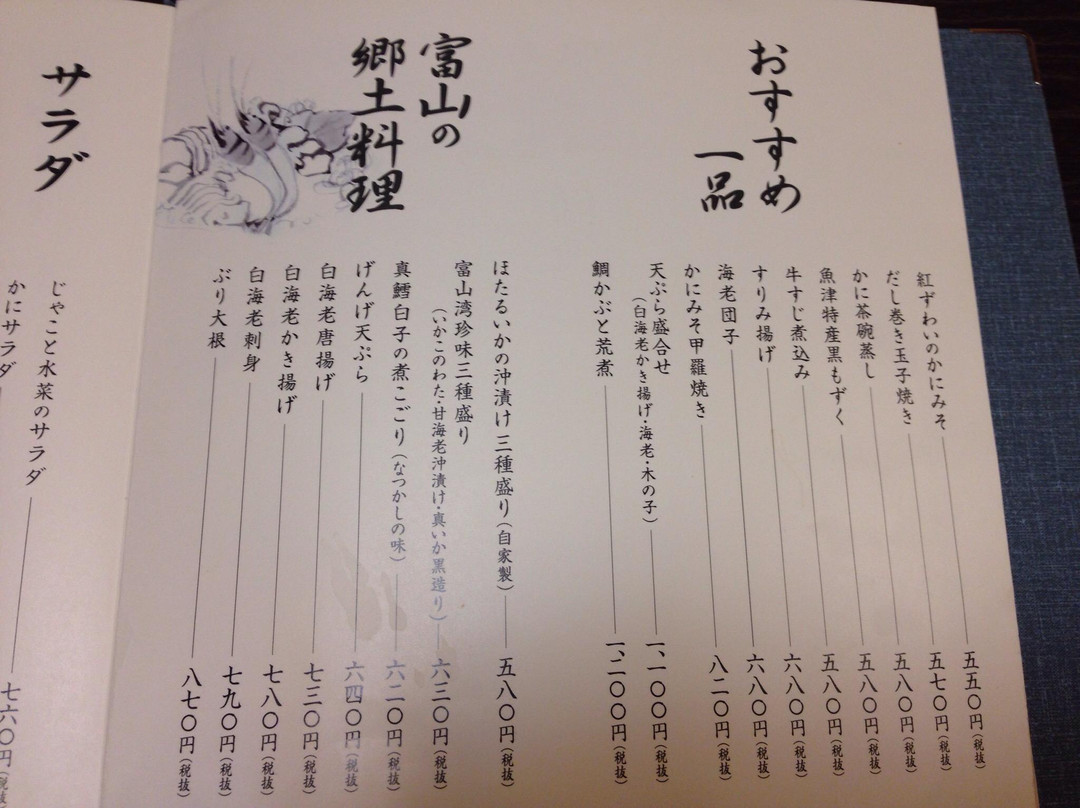 おすすめ
一品
紅ずわいのかにみそ 五五〇円(税抜)
だし巻き玉子焼き 五七〇円(税抜)
かに茶碗蒸し 五八〇円(税抜)
魚津特産黒もずく 五八〇円(税抜)
牛すじ煮込み 五八〇円(税抜)
すりみ揚げ 六八〇円(税抜)
海老団子 六八〇円(税抜)
かにみそ甲羅焼き 八二〇円(税抜)
天ぷら盛合せ
(白海老かき揚げ・海老・木の子) 一、一〇〇円(税抜)
鯛かぶと荒煮 一、二〇〇円(税抜)
富山の
郷土料理
ほたるいかの沖漬け三種盛り(自家製) 五八〇円(税抜)
富山湾珍味三種盛り
(いかこのわた・甘海老沖漬け・真いか黒造り) 六三〇円(税抜)
真鱈白子の煮こごり(なつかしの味) 六二〇円(税抜)
げんげ天ぷら 六四〇円(税抜)
白海老唐揚げ 七三〇円(税抜)
白海老かき揚げ 七八〇円(税抜)
白海老刺身 七九〇円(税抜)
ぶり大根 八七〇円(税抜)
サラダ
じゃこと水菜のサラダ 七六〇円(税抜)
かにサラダ